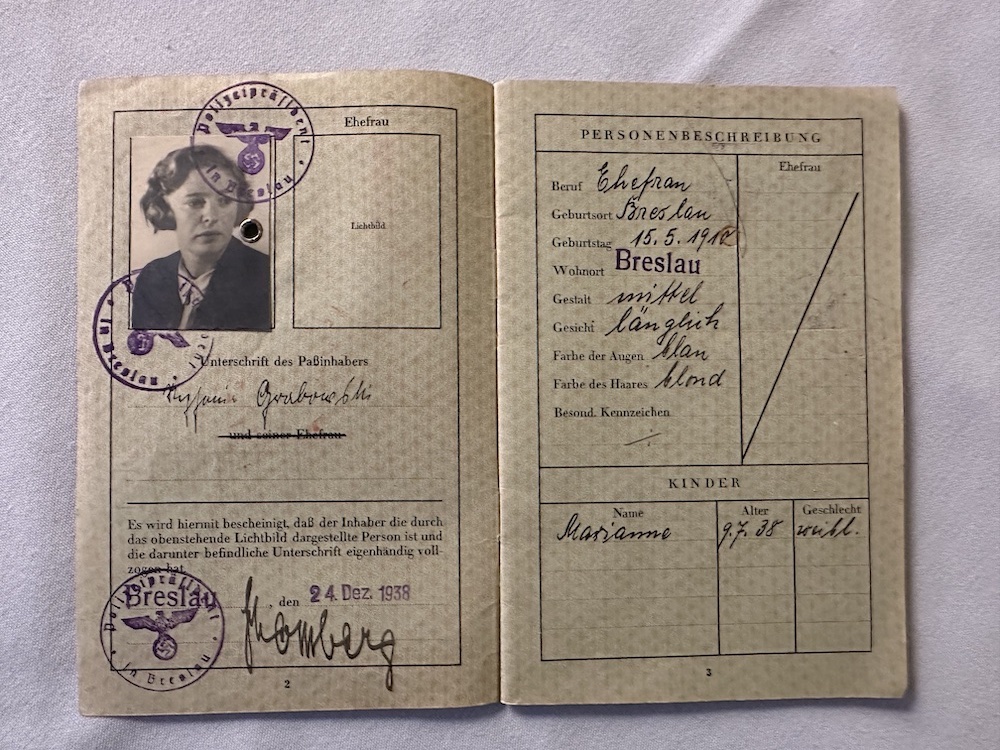 Polizeipräsident in Breslau
Ehefrau
Lichtbild
in Breslau
Unterschrift des Paßinhabers
Grabowski
und seiner Ehefrau
Es wird hiermit bescheinigt, daß der Inhaber die durch
das obenstehende Lichtbild dargestellte Person ist und
die darunter befindliche Unterschrift eigenhändig voll-
zogen hat.
Breslau, den 24. Dez. 1938
Polizeipräsident in Breslau
2
PERSONENBESCHREIBUNG
Ehefrau
Beruf Ehefrau
Geburtsort Breslau
Geburtstag 15.5.1912
Wohnort Breslau
Gestalt mittel
Gesicht länglich
Farbe der Augen blau
Farbe des Haares blond
Besond. Kennzeichen
KINDER
Name Alter Geschlecht
Marianne 9.7.38 weibl.
3